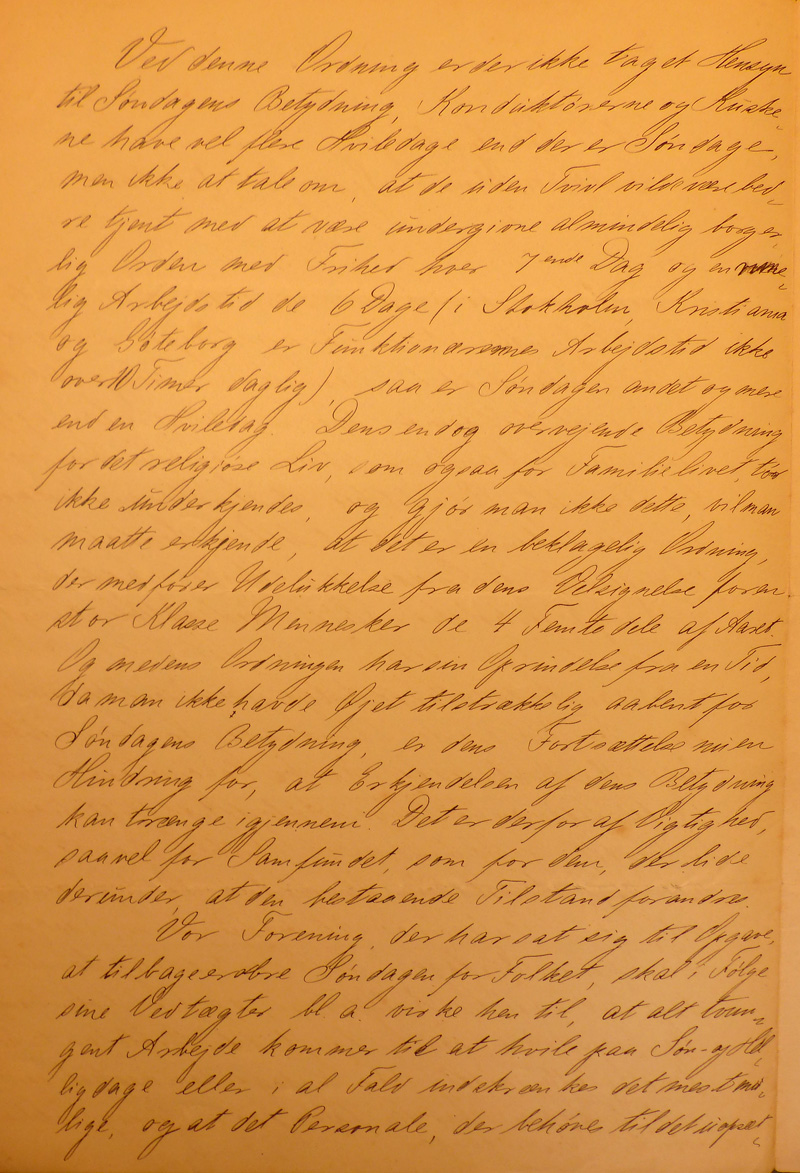 Ved denne Ordning er der ikke taget Hensyn
til Søndagens Betydning, Konduktørerne og Kuske-
ne have vel flere Hviledage end der er Søndage,
men ikke at tale om, at de uden Tvivl vilde være bed-
re tjent med at være undergivne almindelig borger-
lig Orden med Frihed hver 7ende Dag og en rime-
lig Arbejdstid de 6 Dage (i Stokholm, Kristiania
og Göteborg er Funktionærernes Arbejdstid ikke
over 10 Timer daglig), saa er Søndagen andet og mere
end en Hviledag. Dens endog overvejende Betydning
for det religiøse Liv, som ogsaa for Familielivet, tør
ikke underkjendes, og gjør man ikke dette, vil man
maatte erkjende, at det er en beklagelig Ordning,
der medfører Udelukkelse fra dens Velsignelse for en
stor Klasse Mennesker de 4 Femtedele af Aaret.
Og medens Ordningen har sin Oprindelse fra en Tid,
da man ikke havde Øjet tilstrækkelig aabent for
Søndagens Betydning, er dens Fortsættelse nu en
Hindring for, at Erkjendelsen af dens Betydning
kan trænge igjennem. Det er derfor af Vigtighed,
saavel for Samfundet, som for dem, der lide
derunder, at den bestaaende Tilstand forandres.
Vor Forening, der har sat sig til Opgave,
at tilbageerobre Søndagen for Folket, skal i Følge
sine Vedtægter bl. a. virke hen til, at alt tvun-
gent Arbejde kommer til at hvile paa Søn- og Hel-
ligdage eller i al Fald indskrænkes det mest mu-
lige, og at det Personale, der behøves til det uopsæt-